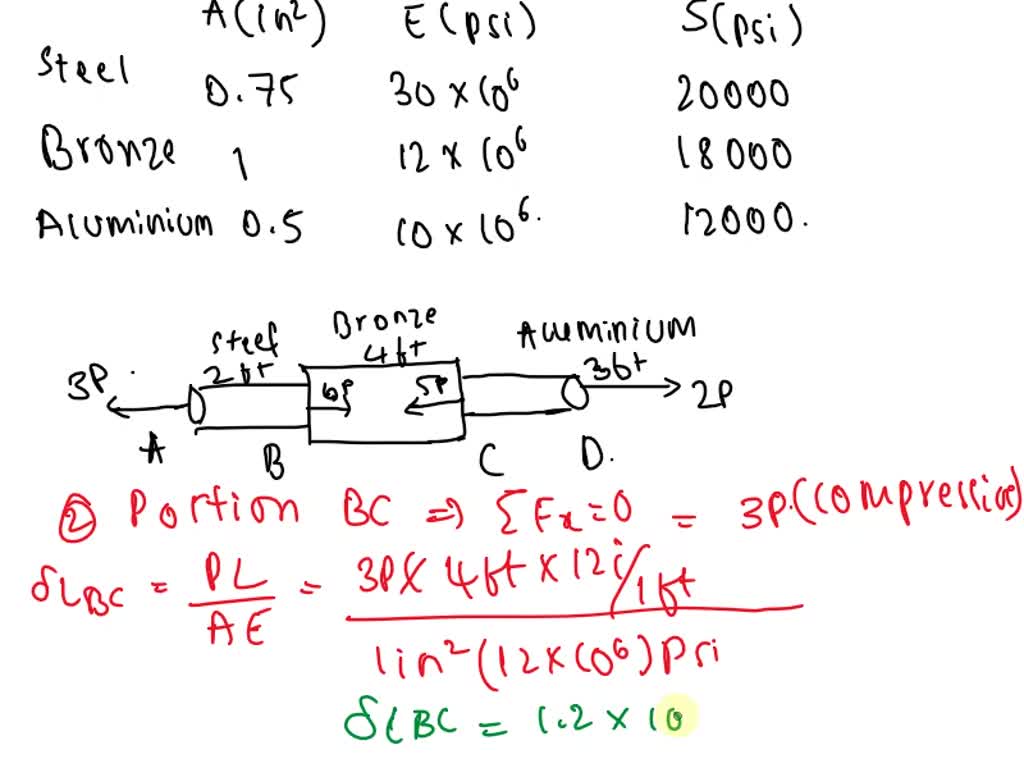 A(in²) E(psi) S(psi)
Steel 0.75 30 × 10⁶ 20000
Bronze 1 12 × 10⁶ 18000
Aluminium 0.5 10 × 10⁶. 12000.
Steel Bronze Aluminium
2ft 4ft 3ft
3P 6P 5P 2P
A B C D.
② Portion BC ⇒ ΣFx=0 = 3P.(compressive)
δLBC = PL/AE = 3P × 4ft × 12i/1ft
1in²(12×10⁶)Psi
δLBC = 1.2 × 10